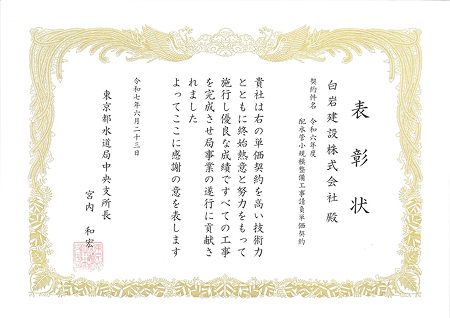 表彰状
白岩建設株式会社 殿
契約件名 令和六年度
配水管小規模整備工事請負単価契約
貴社は右の単価契約を高い技術力
とともに終始熱意と努力をもって
施行し優良な成績ですべての工事
を完成させ局事業の遂行に貢献さ
れました
よってここに感謝の意を表します
令和七年六月二十三日
東京都水道局中央支所長
宮内 和宏